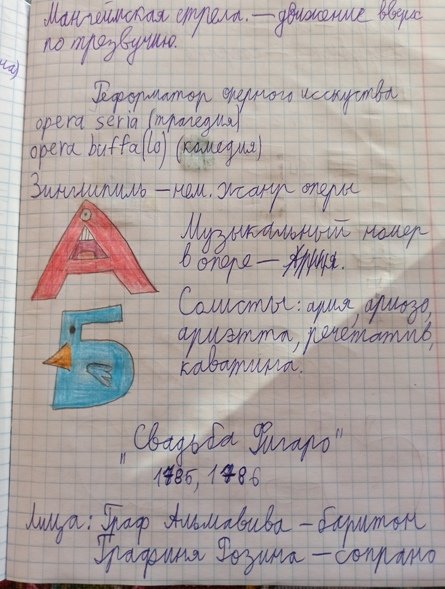 Мангеймская стрела. — движение вверх
по трезвучию.
Реформатор оперного исскуства
opera seria (трагедия)
opera buffa(lo) (комедия)
Зингшпиль — нем. жанр оперы
А
Музыкальный номер
в опере — Ария.
Солисты: ария, ариозо,
ариэтта, речетатив,
каватина.
Б
„Свадьба Фигаро"
1785, 1786
Лица: Граф Альмавива — баритон
Графиня Розина — сопрано